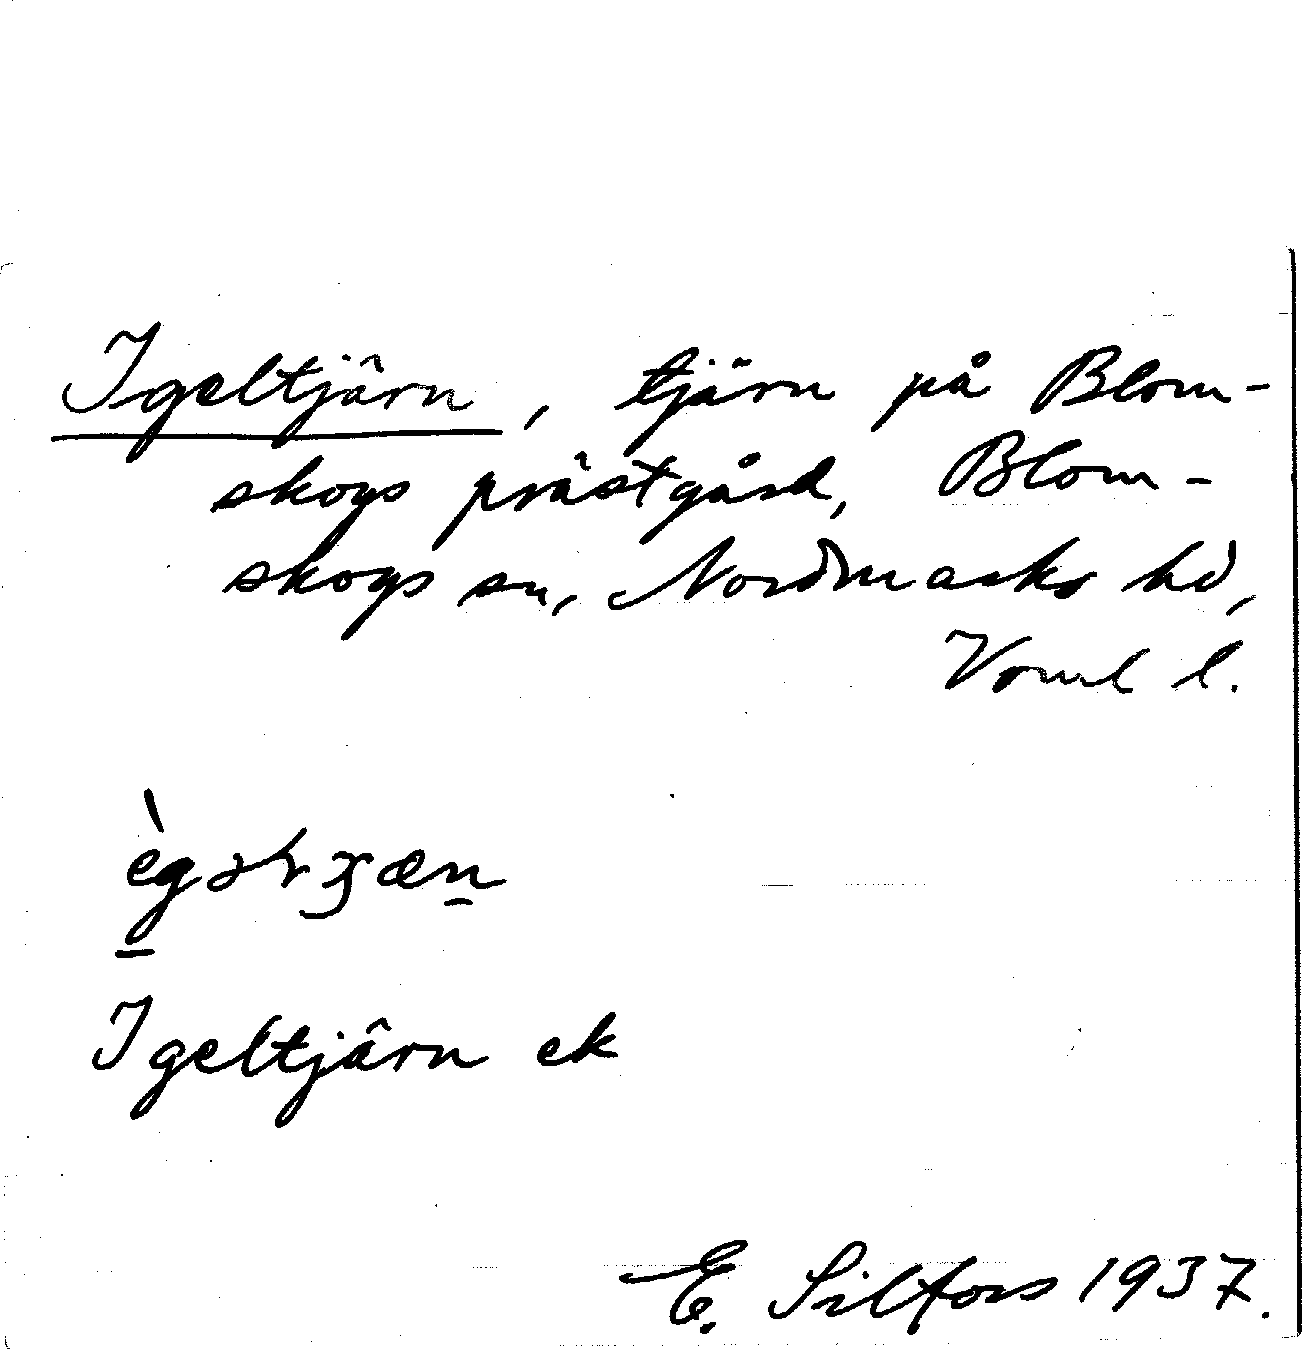 Igeltjärn, tjärn på Blom-
skogs prästgård, Blom-
skogs sn, Nordmarks hd,
Vrml l.
Igeltjärn ek
E. Silfors 1937.